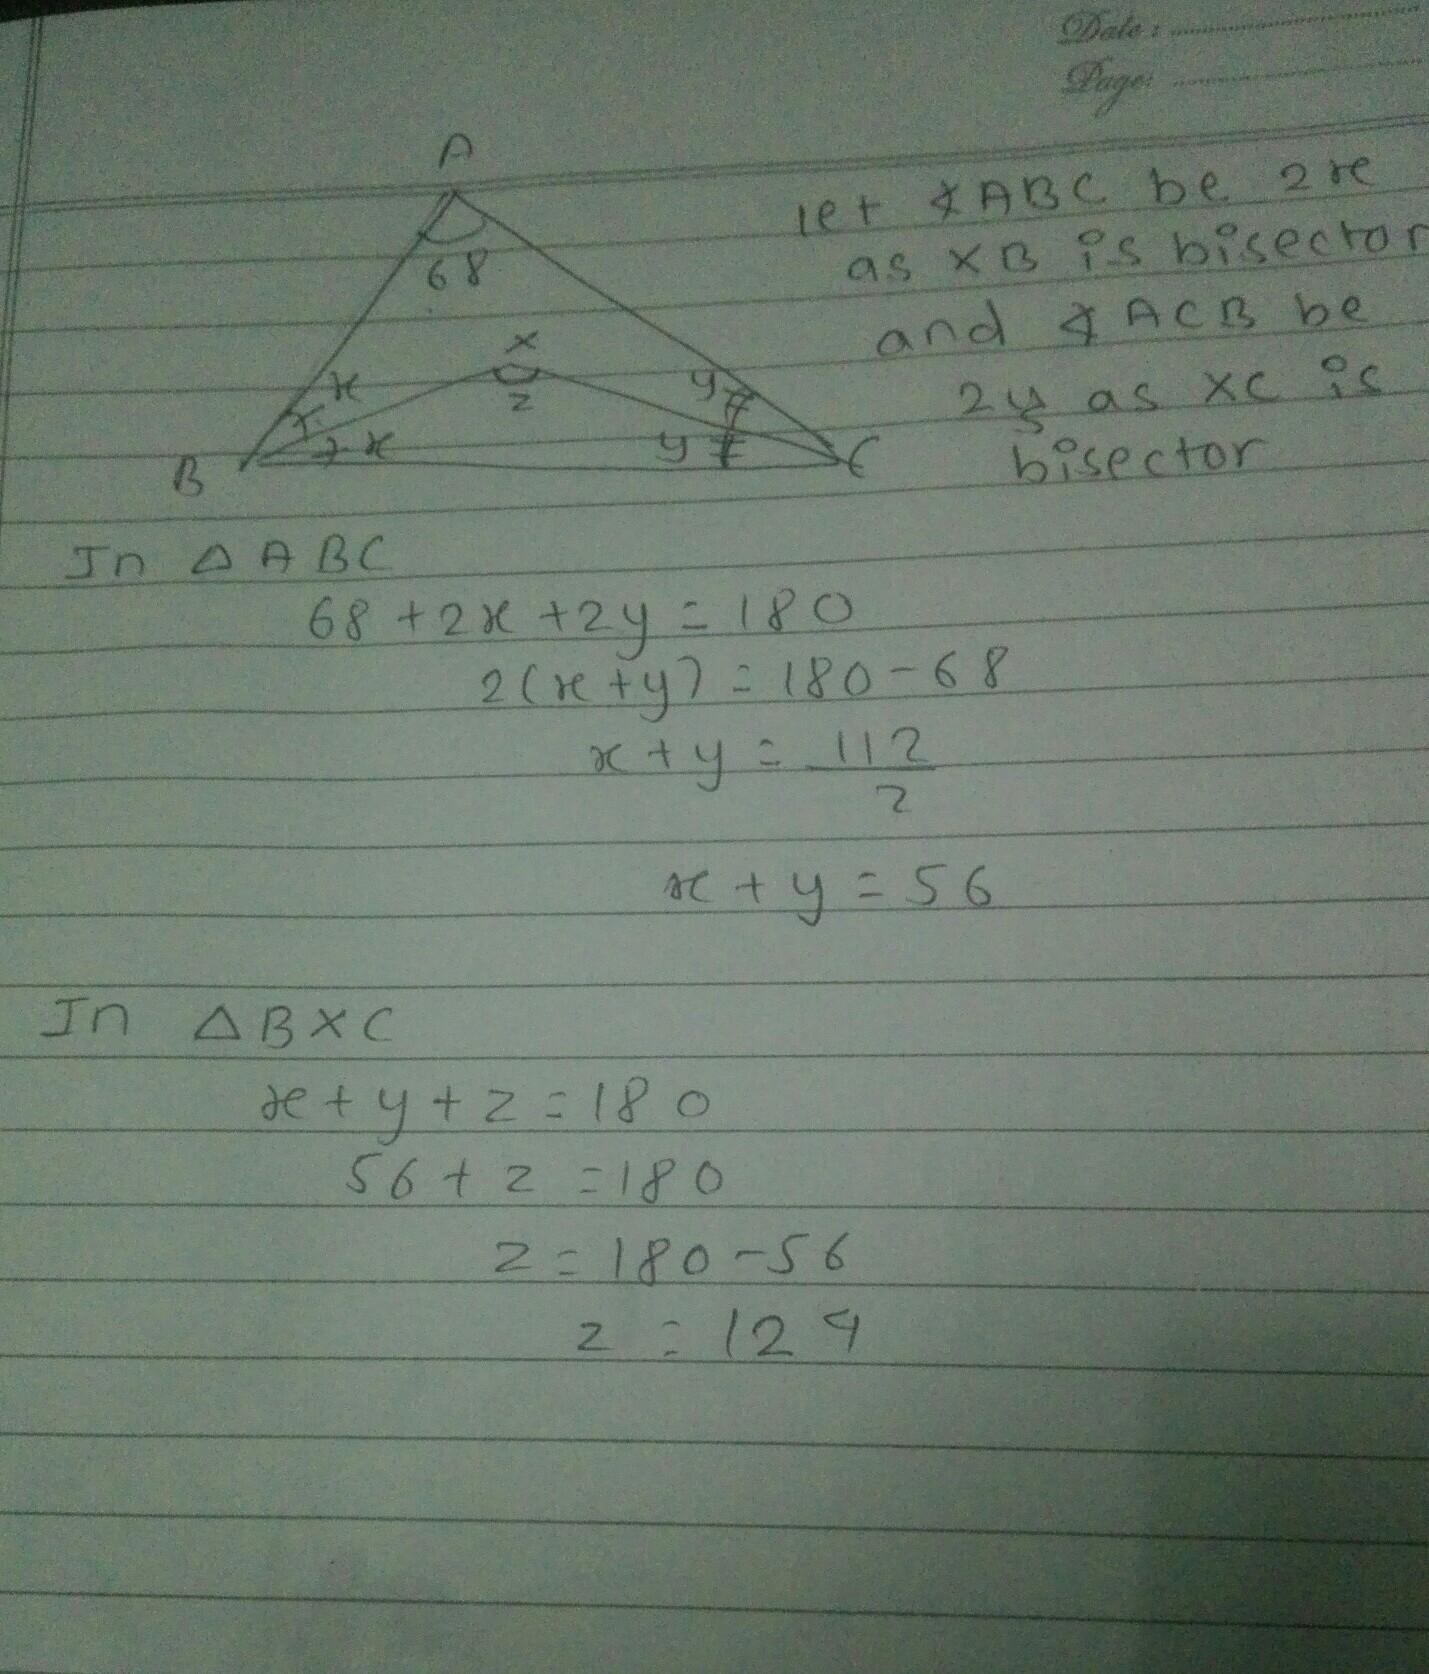 Date:
Page:
A
let ∡ABC be 2x
as XB is bisector
and ∡ACB be
2y as XC is
bisector
68
x
x
z
y
x
y
B
C
In △ABC
68+2x+2y=180
2(x+y)=180-68
x+y=112/2
x+y=56
In △BXC
x+y+z=180
56+z=180
z=180-56
z=124